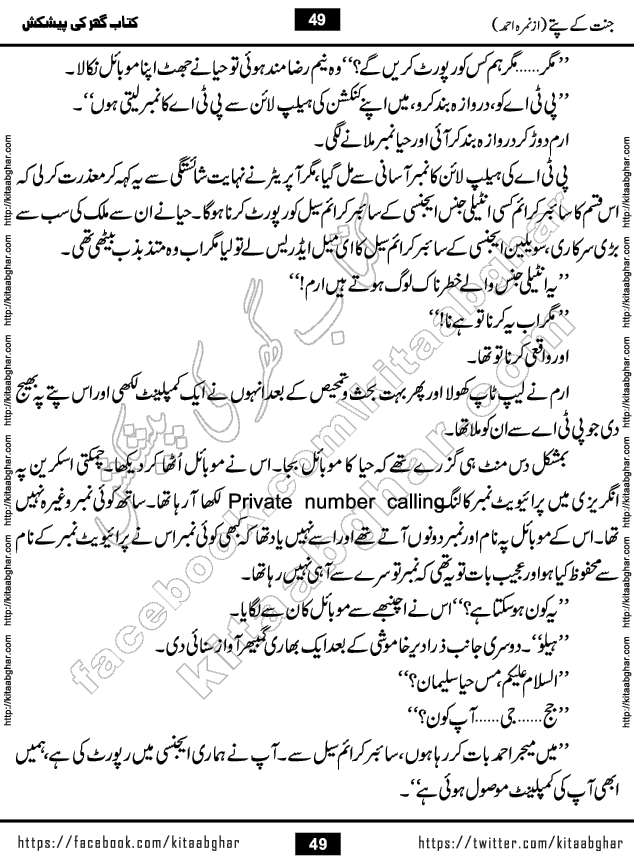 جنت کے پتے (از نمرہ احمد)
49
کتاب گھر کی پیشکش
’’مگر......مگر ہم کس کو رپورٹ کریں گے؟‘‘ وہ نیم رضامند ہوئی تو حیا نے جھٹ اپنا موبائل نکالا۔
’’پی ٹی اے کو، دروازہ بند کرو، میں اپنے کنکشن کی ہیلپ لائن سے پی ٹی اے کا نمبر لیتی ہوں‘‘۔
ارم دوڑ کر دروازہ بند کر آئی اور حیا نمبر ملانے لگی۔
پی ٹی اے کی ہیلپ لائن کا نمبر آسانی سے مل گیا، مگر آپریٹر نے نہایت شائستگی سے یہ کہہ کر معذرت کر لی کہ
اس قسم کا سائبر کرائم کسی انٹیلی جنس ایجنسی کے سائبر کرائم سیل کو رپورٹ کرنا ہوگا۔ حیا نے ان سے ملک کی سب سے
بڑی سرکاری، سویلین ایجنسی کے سائبر کرائم سیل کا ای میل ایڈریس لے تو لیا مگر اب وہ متذبذب بیٹھی تھی۔
’’یہ انٹیلی جنس والے خطرناک لوگ ہوتے ہیں ارم!‘‘
’’مگر اب یہ کرنا تو ہے نا!‘‘
اور واقعی کرنا تو تھا۔
ارم نے لیپ ٹاپ کھولا اور پھر بہت بحث و تمحیص کے بعد انہوں نے ایک کمپلینٹ لکھی اور اس پتے پہ بھیج
دی جو پی ٹی اے سے ان کو ملا تھا۔
بمشکل دس منٹ ہی گزرے تھے کہ حیا کا موبائل بجا۔ اس نے موبائل اُٹھا کر دیکھا۔ چمکتی اسکرین پہ
انگریزی میں پرائیویٹ نمبر کالنگ Private number calling لکھا آ رہا تھا۔ ساتھ کوئی نمبر وغیرہ نہیں
تھا۔ اس کے موبائل پہ نام اور نمبر دونوں آتے تھے اور اسے نہیں یاد تھا کہ کبھی کوئی نمبر اس نے پرائیویٹ نمبر کے نام
سے محفوظ کیا ہو اور عجیب بات تو یہ تھی کہ نمبر تو سرے سے آ ہی نہیں رہا تھا۔
’’یہ کون ہو سکتا ہے؟‘‘ اس نے اچنبھے سے موبائل کان سے لگایا۔
’’ہیلو‘‘۔ دوسری جانب ذرا دیر خاموشی کے بعد ایک بھاری گمبھیر آواز سنائی دی۔
’’السلام علیکم، مس حیا سلیمان؟‘‘
’’جج......جی......آپ کون؟‘‘
’’میں میجر احمد بات کر رہا ہوں، سائبر کرائم سیل سے۔ آپ نے ہماری ایجنسی میں رپورٹ کی ہے، ہمیں
ابھی آپ کی کمپلینٹ موصول ہوئی ہے‘‘۔
http://kitaabghar.com http://kitaabghar.com http://kitaabghar.com http://kitaabghar.com http://kitaabghar.com http://kitaabghar.com
http://kitaabghar.com http://kitaabghar.com http://kitaabghar.com http://kitaabghar.com http://kitaabghar.com http://kitaabghar.com
کتاب گھر کی پیشکش
kitaabghar.com
facebook.com/kitaabghar
https://facebook.com/kitaabghar
49
https://twitter.com/kitaabghar